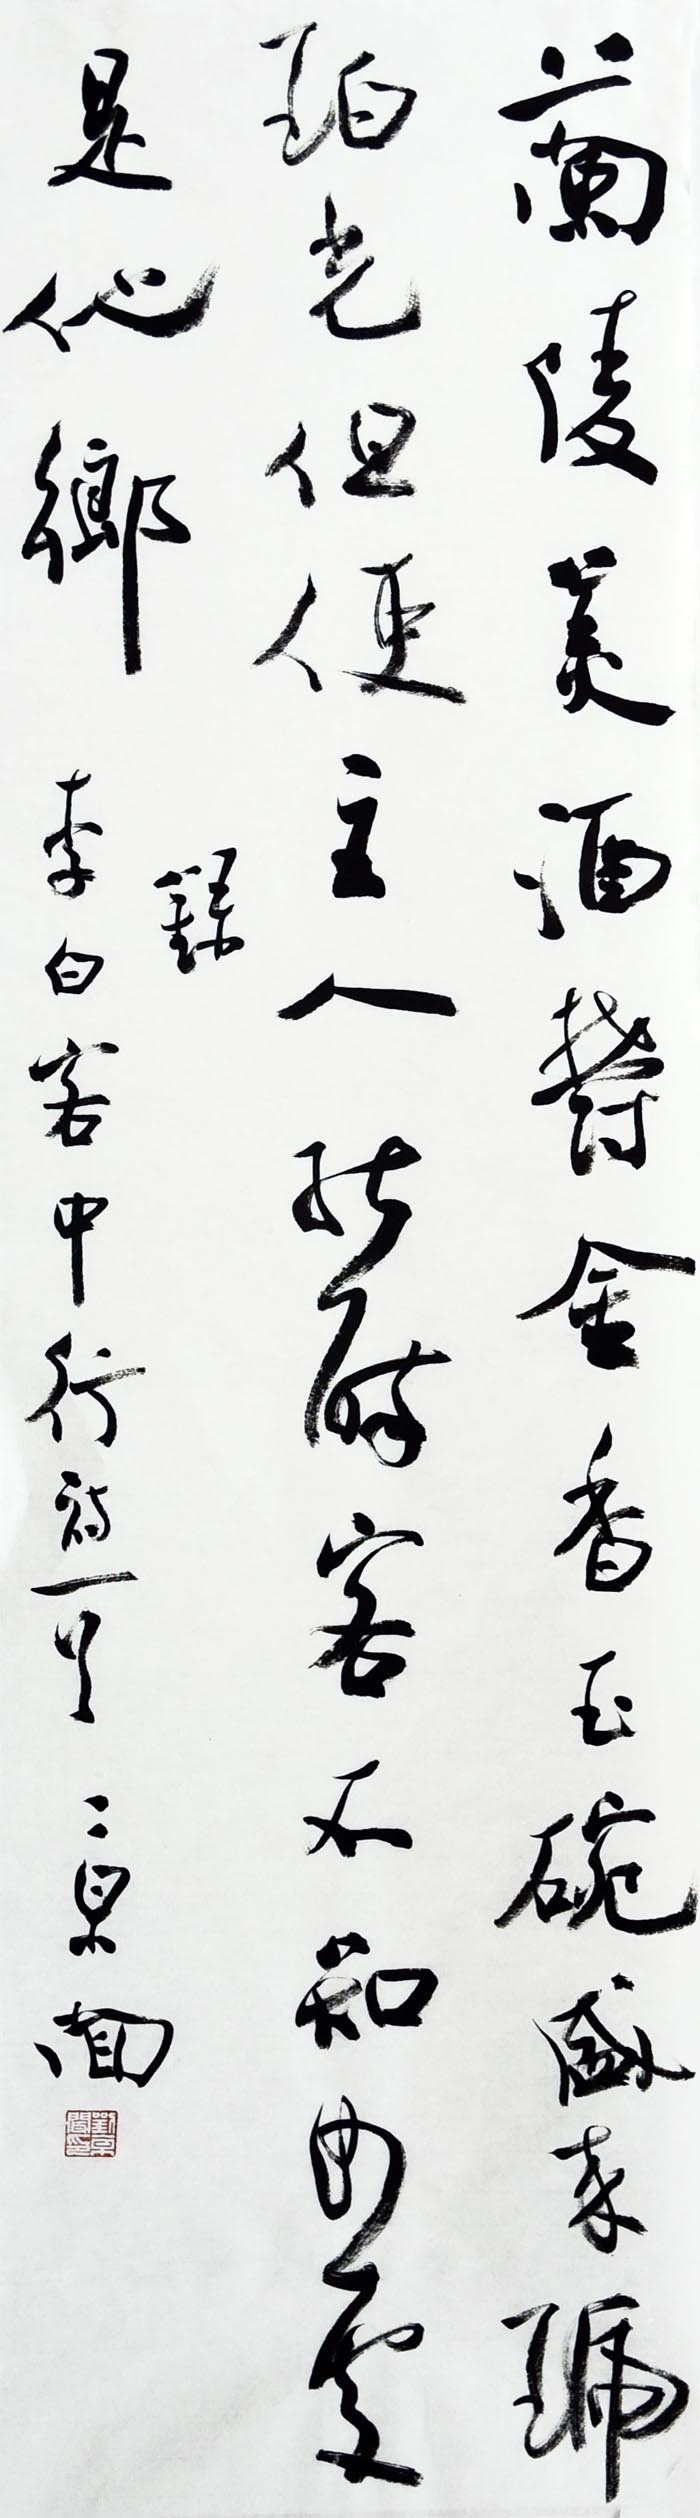 蘭陵美酒鬱金香玉碗盛来琥
珀光但使主人能醉客不知何處
是他鄉
錄
李白客中行詩一首 京